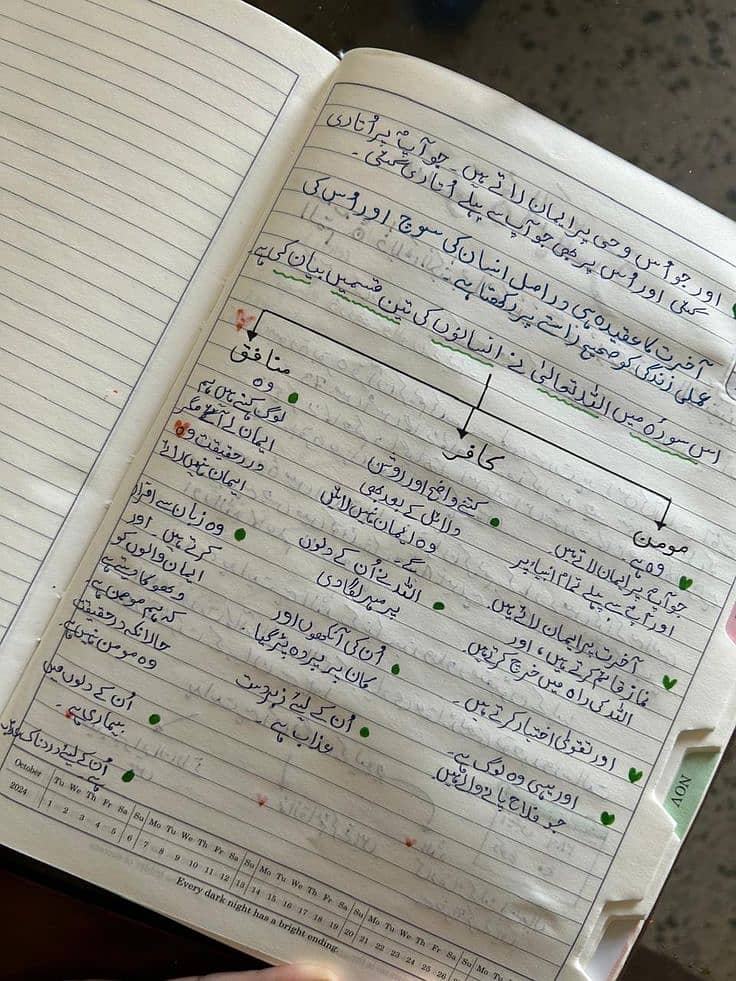 اور جو اُس وحی پر ایمان لاتے ہیں۔ جو آپؐ پر اُتاری
گئی اور اُس پر بھی جو آپ سے پہلے اُتاری گئی۔
آخرت کا عقیدہ ہی دراصل انسان کی سوچ اور اُس کی
عملی زندگی کو صحیح راستے پر رکھتا ہے۔
اس سورہ میں اللہ تعالیٰ نے انسانوں کی تین قسمیں بیان کی ہے۔
مومن
وہ ہے
جو آپؐ پر ایمان لاتے ہیں۔
اور آپؐ سے پہلے تمام انبیاء پر
آخرت پر ایمان لاتے ہیں۔
نماز قائم کرتے ہیں، اور
اللہ کی راہ میں خرچ کرتے ہیں
اور تقویٰ اختیار کرتے ہیں۔
اور یہی وہ لوگ ہے۔
جو فلاح پانے والے ہیں۔
کافر
کتنے واضح اور روشن
دلائل کے بعد بھی
وہ ایمان نہیں لائیں
گے۔
اللہ نے اُن کے دلوں
پر مہر لگا دی
اُن کی آنکھوں اور
کان پر پردہ پڑ گیا۔
اُن کے لیئے زبردست
عذاب ہے۔
منافق
وہ
لوگ کہتے ہیں ہم
ایمان لے آئے مگر
درحقیقت وہ
ایمان نہیں لائے
وہ زبان سے اقرار
کرتے ہیں اور
ایمان والوں کو
دھوکا دیتے ہے
کہ ہم مومن ہے۔
حالانکہ درحقیقت
وہ مومن نہیں ہے۔
اُن کے دلوں میں
بیماری ہے۔
اُن کے لیئے دردناک عذاب
ہے۔
NOV
October Tu We Th Fr Sa Su Mo Tu We Th Fr Sa Su Mo Tu We Th Fr Sa Su Mo Tu We Th Fr Sa Su Mo Tu
2024 1 2 3 4 5 6 7 8 9 10 11 12 13 14 15 16 17 18 19 20 21 22 23 24 25 26
Every dark night has a bright ending.